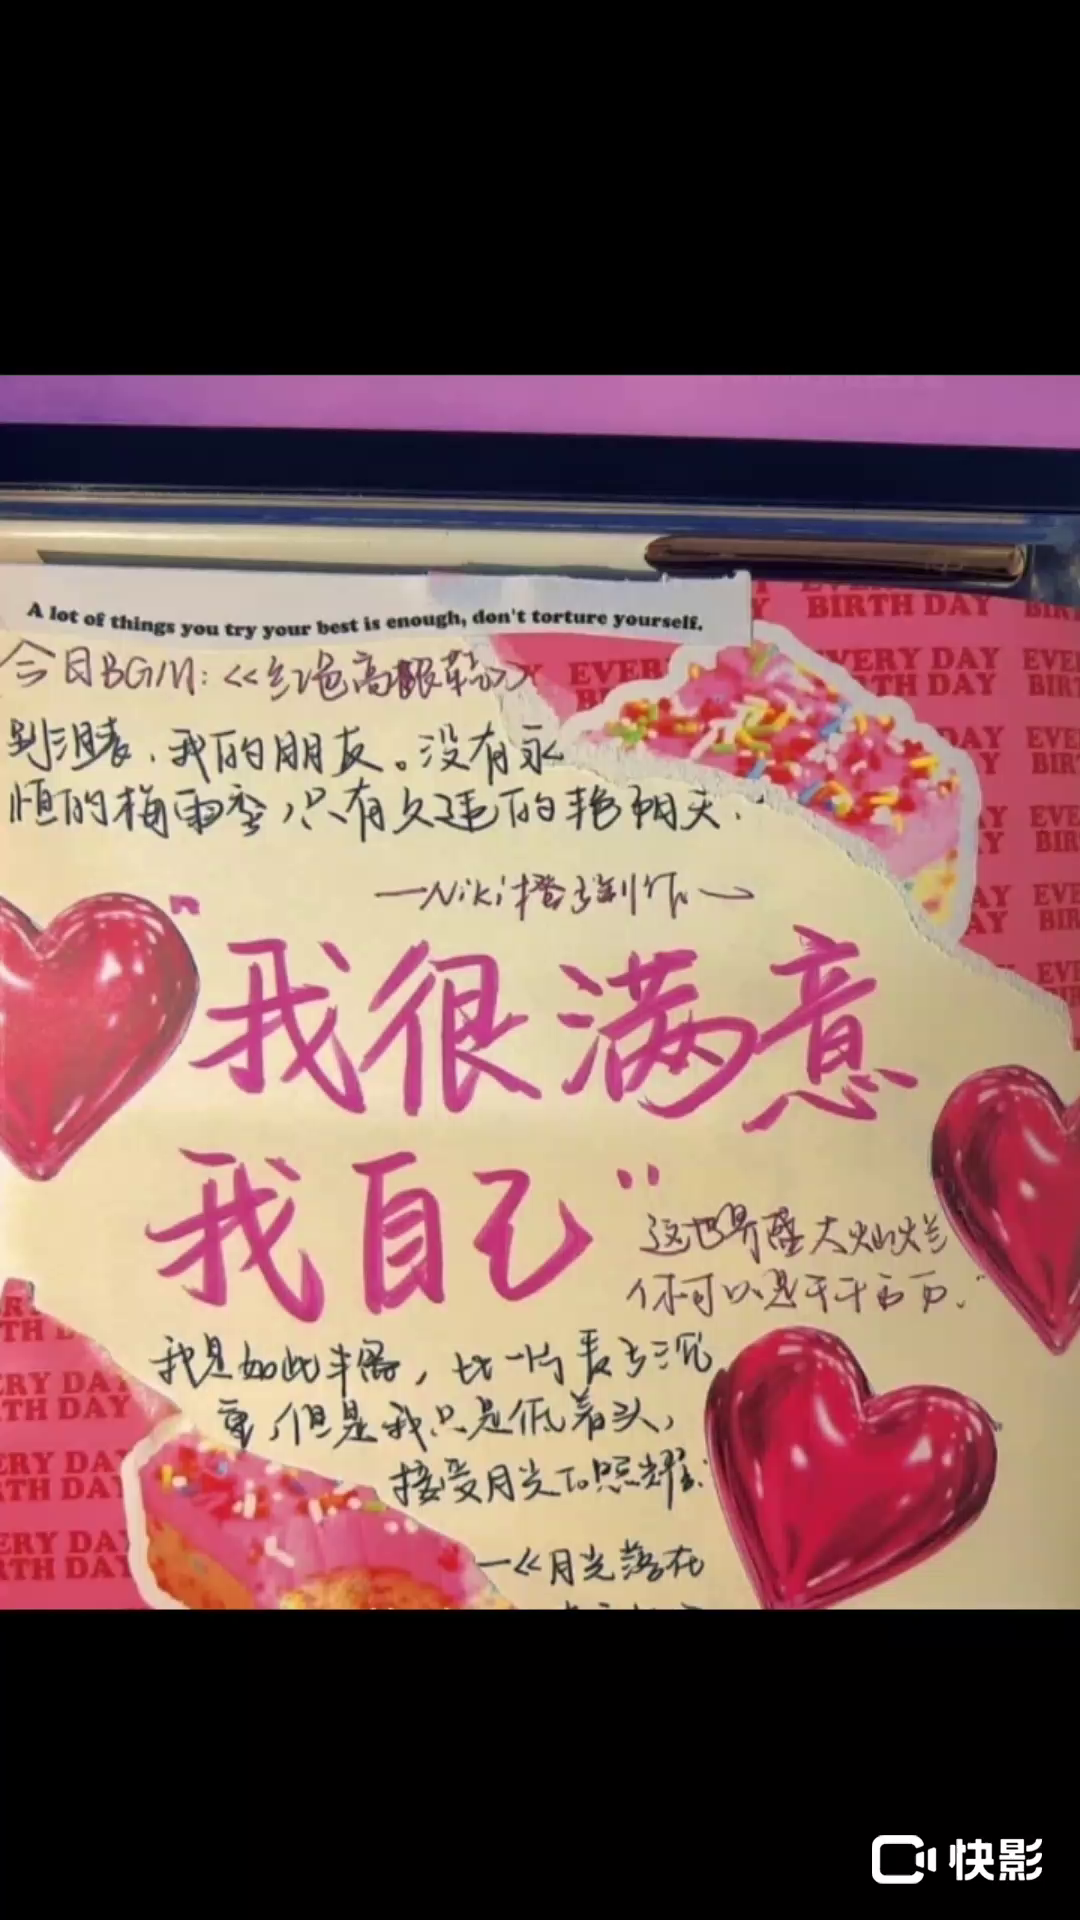 A lot of things you try your best is enough, don't torture yourself.
今日BGM:《红色高跟鞋》
别沮丧,我的朋友。没有永
恒的梅雨季,只有久违的艳阳天.
—Niki橙子制作—
"我很满意
我自己"
这世界盛大灿烂
你可以是千千万万."
我是如此丰富,比一片麦子沉
重,但是我只是低着头,
接受月光的照耀.
—《月光落在
EVERY DAY
BIRTH DAY
快影